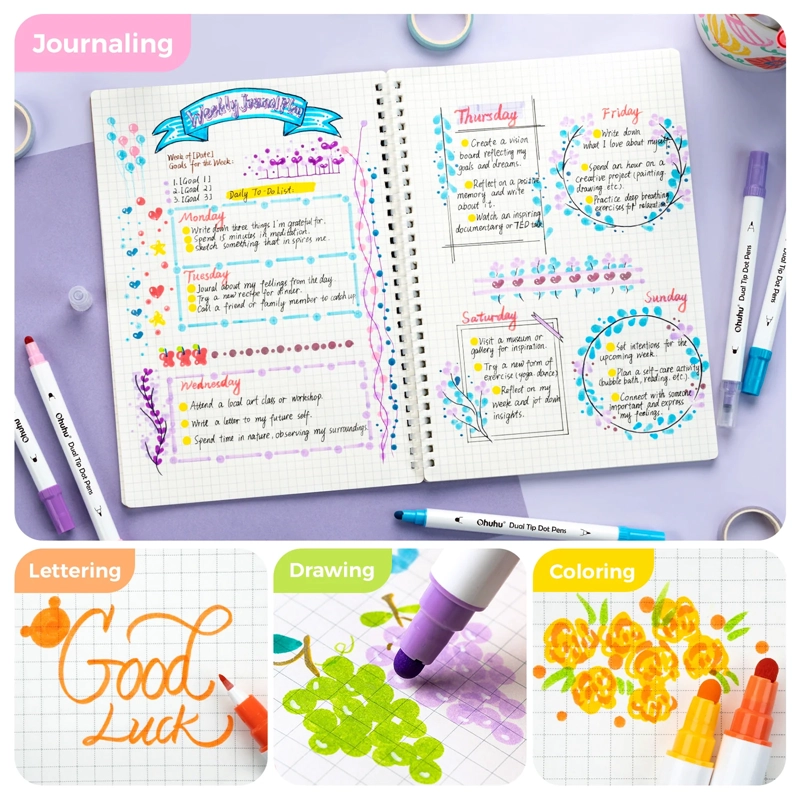 Journaling
Weekly Journal Plan
Week of [Date]
Goals for the Week:
1. [Goal 1]
2. [Goal 2]
3. [Goal 3]
Daily To-Do List:
Monday
Write down three things I'm grateful for.
Spend 15 minutes in meditation.
Sketch something that inspires me.
Tuesday
Joural about my feelings from the day.
Try a new recipe for dinner.
Call a friend or family member to catch up
Wednesday
Attend a local art class or workshop.
Write a letter to my future self.
Spend time in nature, observing my surroundings.
Thursday
Create a vision
board reflecting my
goals and dreams.
Reflect on a
memory and write
about it.
Watch an inspiring
documentary or TED talk
Friday
Write down
what I love about myself.
Spend an hour on a
creative project (painting,
drawing etc).
Practice deep breathing
exercises for relaxati
Saturday
Visit a museum or
gallery for inspiration.
Try a new form of
exercise (yoga dance)
Reflect on my
week and jot down
insights.
Sunday
Set intentions for the
upcoming week.
Plan a self-care activity
(bubble bath, reading, etc.)
Connect with someone
important and express
my feelings.
Ohuhu Dual Tip Dot Pens
Ohuhu Dual Tip Dot Pens
Ohuhu
Ohuhu Dual Tip Dot Pens
Ohuhu Dual Tip Dot Pens
Lettering
Good
Luck
Drawing
Coloring